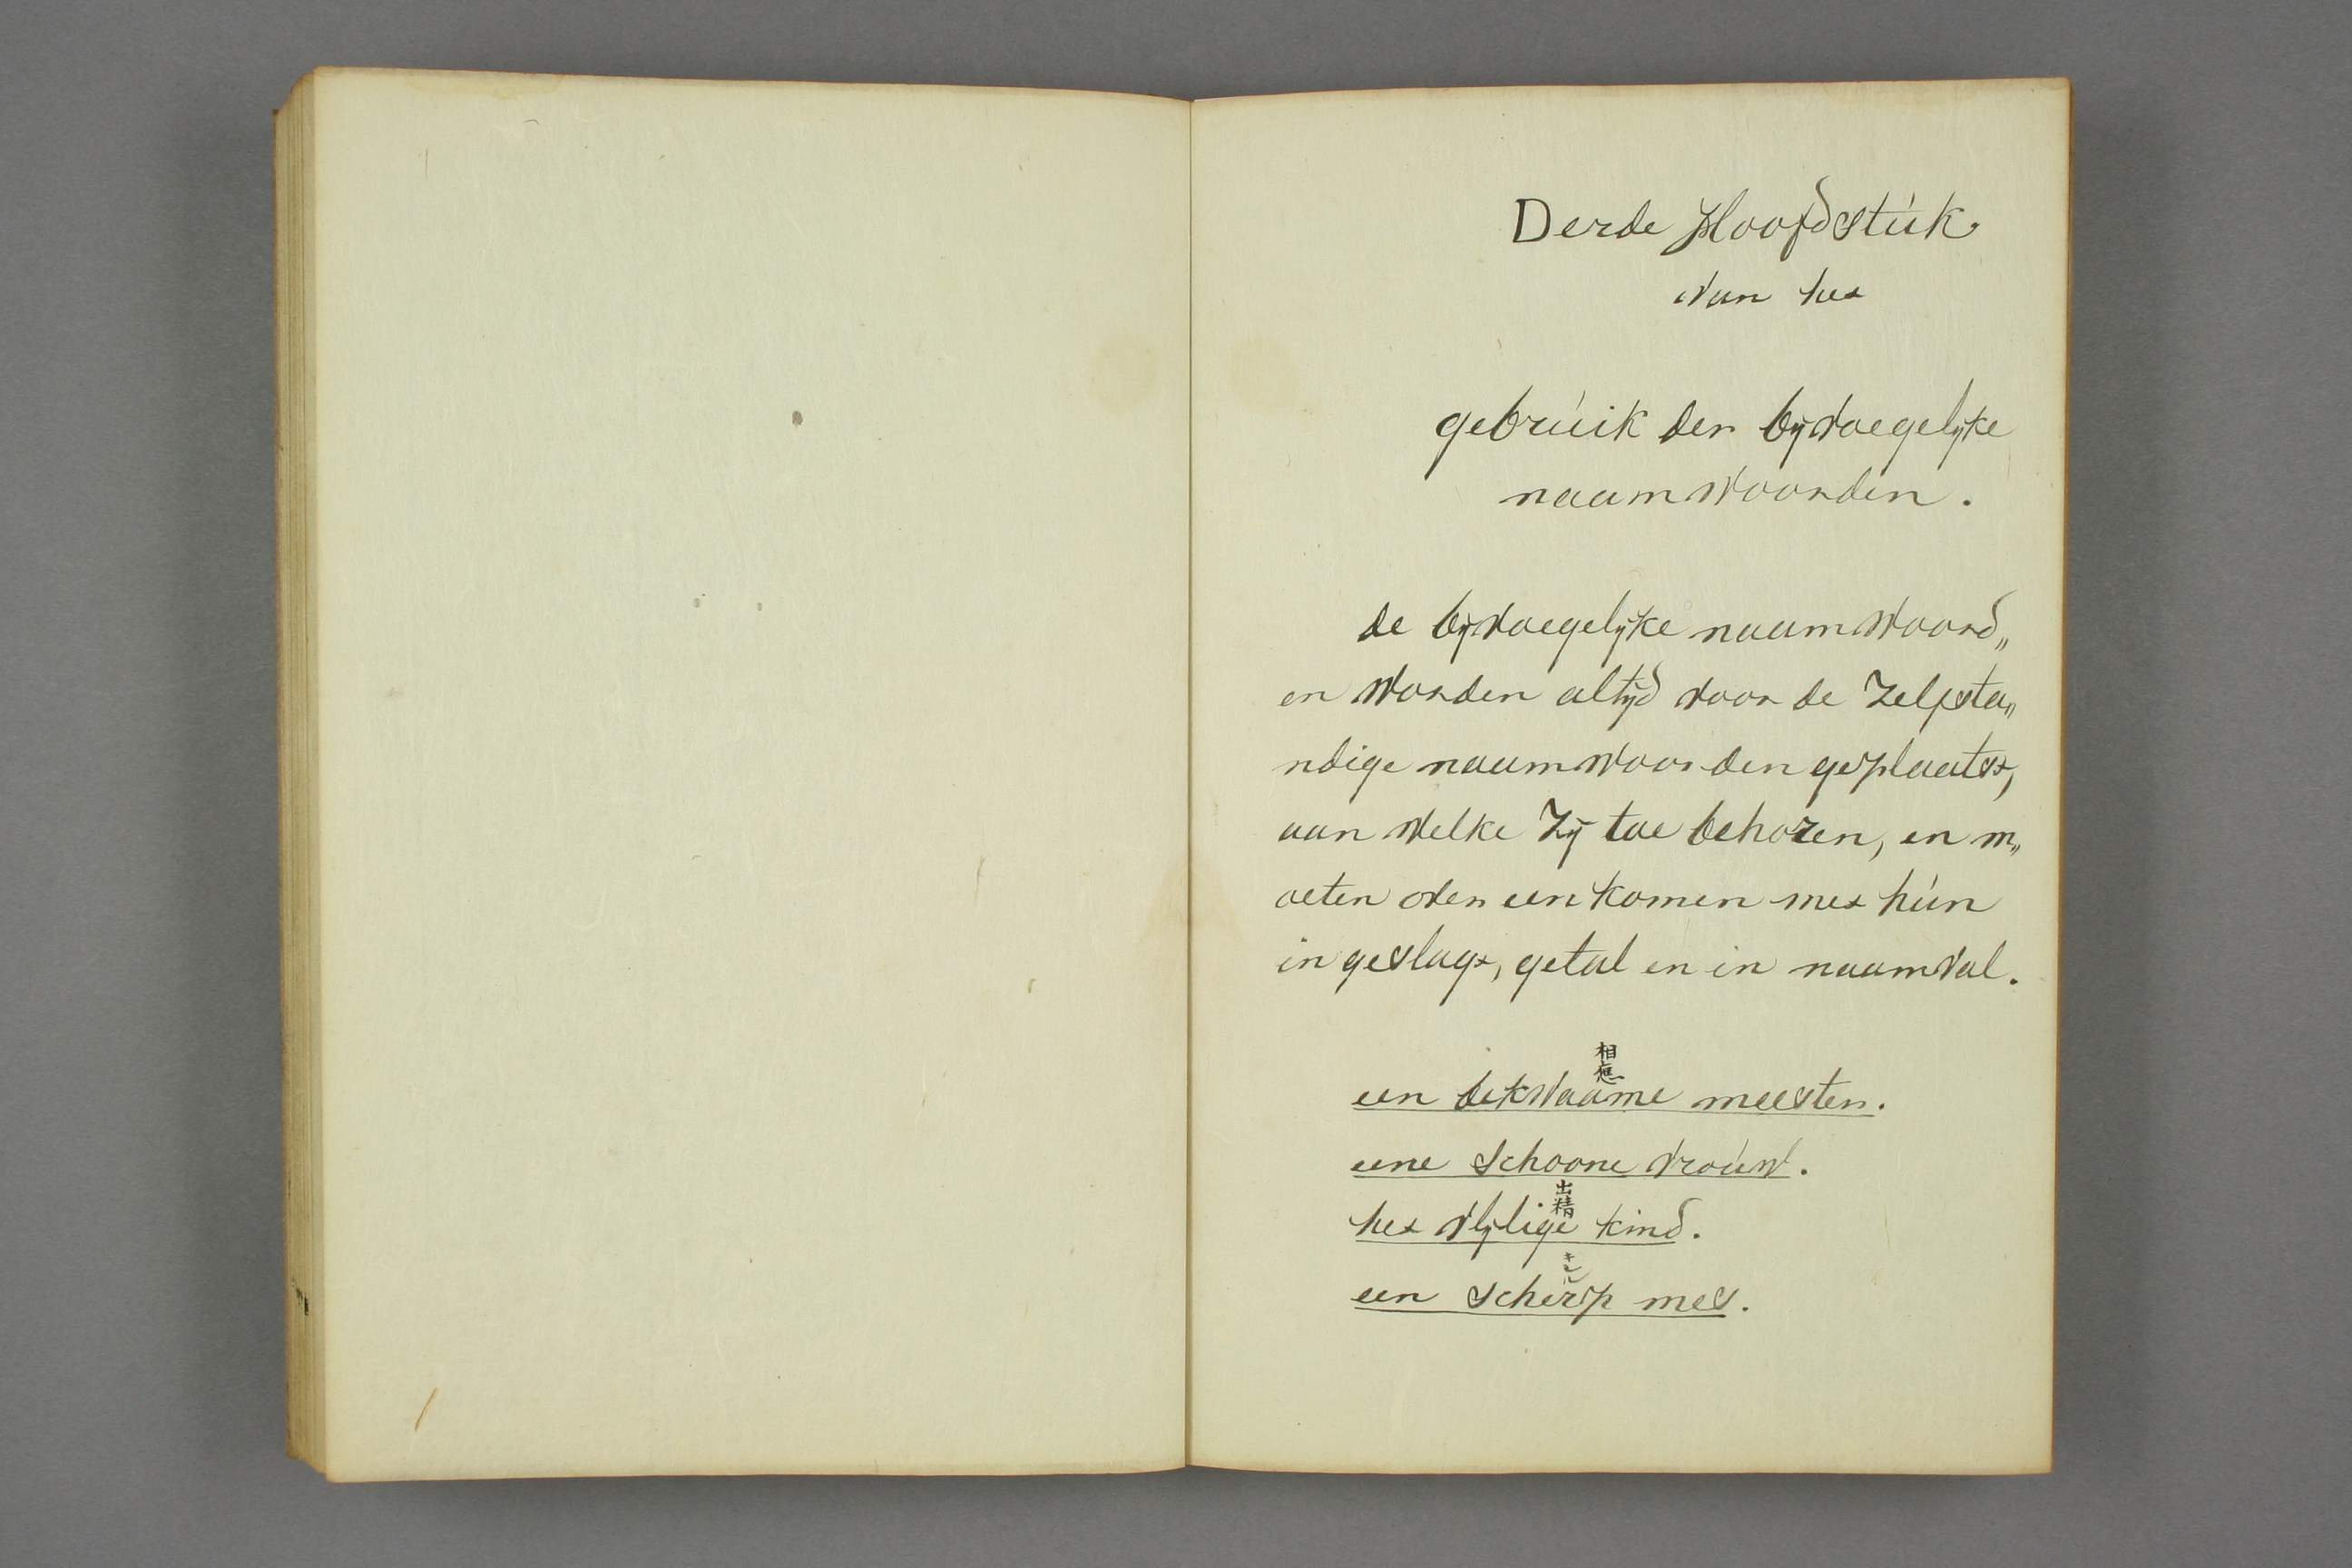 Derde Hoofdstúk
van het
gebrúik der bijvoegelijke
naamwoorden.
de bijvoegelijke naamwoord„
en worden altijd voor de zelfsta„
ndige naamwoorden geplaatst,
aan welke zij toe behoren, en m„
oeten over een komen met hún
in geslagt, getal en in naamval.
相應
een bekwaame meester.
eene schoone vroúw.
出精
het vlijtige kind.
een scherp mes.